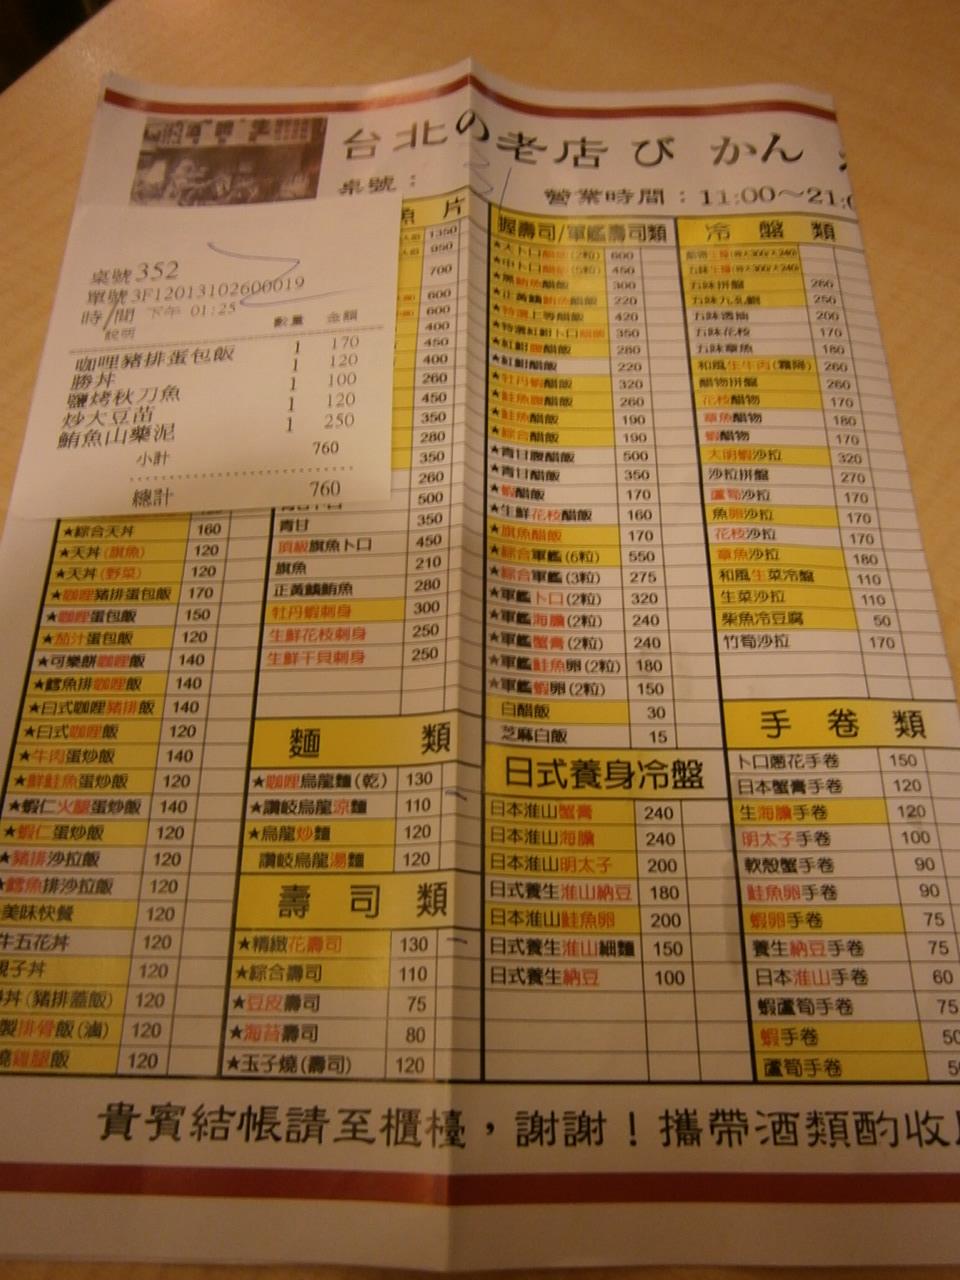 台北の老店びかん
桌號：
營業時間：11:00～21:0
桌號352
單號3F12013102600019
時/間 下午 01:25
說明 數量 金額
咖哩豬排蛋包飯 1 170
勝丼 1 120
鹽烤秋刀魚 1 100
炒大豆苗 1 120
鮪魚山藥泥 1 250
小計 760
總計 760
★綜合天丼 160
★天丼(旗魚) 120
★天丼(野菜) 120
★咖哩豬排蛋包飯 170
★咖哩蛋包飯 150
★茄汁蛋包飯 120
★可樂餅咖哩飯 140
★鱈魚排咖哩飯 140
★日式咖哩豬排飯 140
★日式咖哩飯 120
★牛肉蛋炒飯 140
★鮮鮭魚蛋炒飯 120
★蝦仁火腿蛋炒飯 140
★蝦仁蛋炒飯 120
★豬排沙拉飯 120
★鱈魚排沙拉飯 120
美味快餐 120
牛五花丼 120
親子丼 120
丼(豬排蓋飯) 120
製排骨飯(滷) 120
燒雞腿飯 120
魚片
1350
950
700
600
600
400
450
400
260
450
350
280
350
260
500
青甘 350
頂級旗魚卜口 450
旗魚 210
正黃鰭鮪魚 280
牡丹蝦刺身 300
生鮮花枝刺身 250
生鮮干貝刺身 250
麵類
★咖哩烏龍麵(乾) 130
★讚岐烏龍涼麵 110
★烏龍炒麵 120
讚岐烏龍湯麵 120
壽司類
★精緻花壽司 130
★綜合壽司 110
★豆皮壽司 75
★海苔壽司 80
★玉子燒(壽司) 120
握壽司/軍艦壽司類
★大卜口醋飯(2粒) 600
★中卜口醋飯(5粒) 450
★黑鮪魚醋飯 300
★正黃鰭鮪魚醋飯 220
★特選上等醋飯 420
★特選紅魽卜口醋飯 350
★紅魽腹醋飯 280
★紅魽醋飯 220
★牡丹蝦醋飯 320
★鮭魚腹醋飯 260
★鮭魚醋飯 190
★綜合醋飯 190
★青甘腹醋飯 500
★青甘醋飯 350
★蝦醋飯 170
★生鮮花枝醋飯 160
★旗魚醋飯 170
★綜合軍艦(6粒) 550
★綜合軍艦(3粒) 275
★軍艦卜口(2粒) 320
★軍艦海膽(2粒) 240
★軍艦蟹膏(2粒) 240
★軍艦鮭魚卵(2粒) 180
★軍艦蝦卵(2粒) 150
白醋飯 30
芝麻白飯 15
日式養身冷盤
日本淮山蟹膏 240
日本淮山海膽 240
日本淮山明太子 200
日式養生淮山納豆 180
日本淮山鮭魚卵 200
日式養生淮山細麵 150
日式養生納豆 100
冷盤類
五味拼盤 260
五味九孔鮑 250
五味透抽 200
五味花枝 170
五味章魚 180
和風生牛肉(霜降) 260
醋物拼盤 260
花枝醋物 170
章魚醋物 180
蝦醋物 170
大明蝦沙拉 320
沙拉拼盤 270
蘆筍沙拉 170
魚卵沙拉 170
花枝沙拉 170
章魚沙拉 180
和風生菜冷盤 110
生菜沙拉 110
柴魚冷豆腐 50
竹筍沙拉 170
手卷類
卜口蔥花手卷 150
日本蟹膏手卷 120
生海膽手卷 120
明太子手卷 100
軟殼蟹手卷 90
鮭魚卵手卷 90
蝦卵手卷 75
養生納豆手卷 75
日本淮山手卷 60
蝦蘆筍手卷 75
蝦手卷 50
蘆筍手卷
貴賓結帳請至櫃檯，謝謝！攜帶酒類酌收